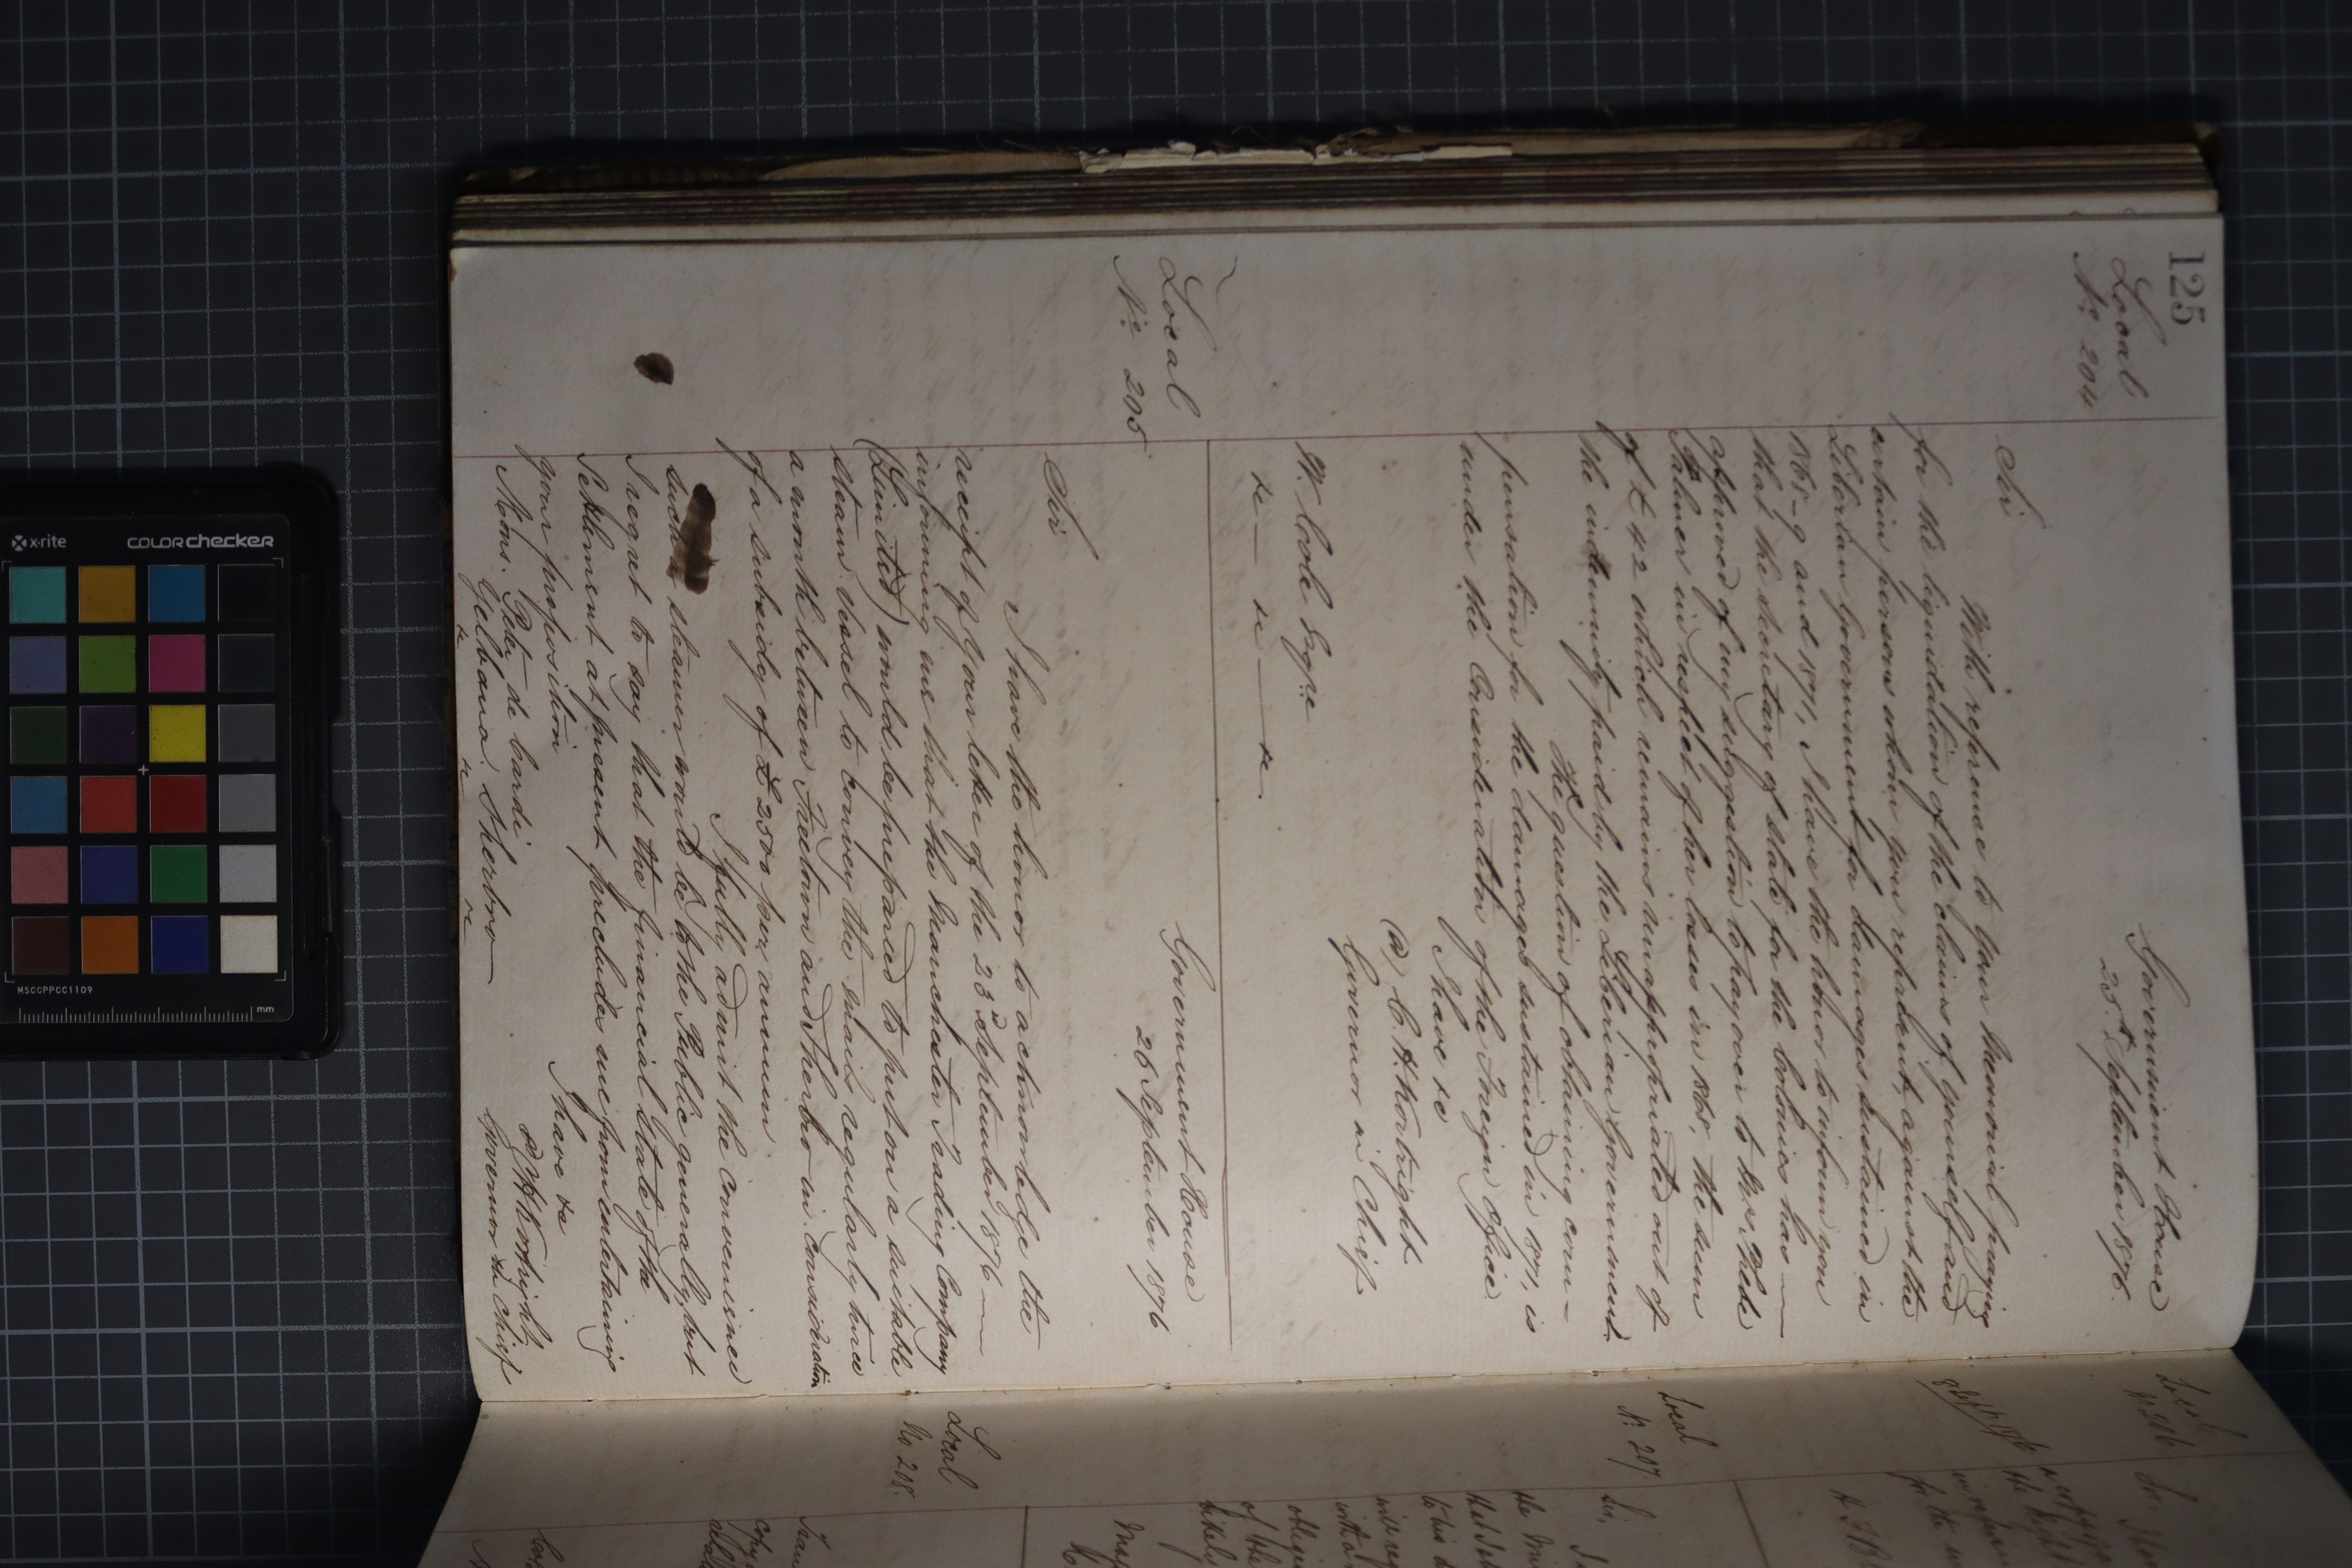 125
Local
No. 204
Government House
25th September 1876.
Sir
With reference to your Memorial praying
for the liquidation of the claims of yourself and
certain persons whom you represent, against the
Liberian Government for damages sustained in
1868-9 and 1871, I have the honor to inform you
that the Secretary of State for the Colonies has
approved of my suggestion to pay over to Mrs.
Palmer in respect of her losses in 1868, the sum
of £42 which remains unappropriated out of
the indemnity paid by the Liberian Government
The question of obtaining com-
pensation for the damages sustained in 1871, is
under the Consideration of the Foreign Office
I have &c
C. H. Kortright
Governor in Chief
W. Cole Esqre
&c — &c — &c.
Local
No. 205
Government House
26 September 1876
Sir
I have the honor to acknowledge the
receipt of your letter of the 23d September 1876 —
informing me that the Manchester Trading Company
(Limited) would be prepared to put on a suitable
steam vessel to convey the mails regularly twice
a month between Freetown and Sherbro in consideration
of a subsidy of £2500 per annum
I fully admit the convenience
such a steamer would be to the Public generally, but
I regret to say that the financial state of the
Settlement at present precludes me from entertaining
your proposition
I have &c
C H Kortright
Governor in Chief
Mons.
Sherbro
&c &c &c
Local
No 206
Sir
Local
No. 207
Sir,
the
Local
No 208.